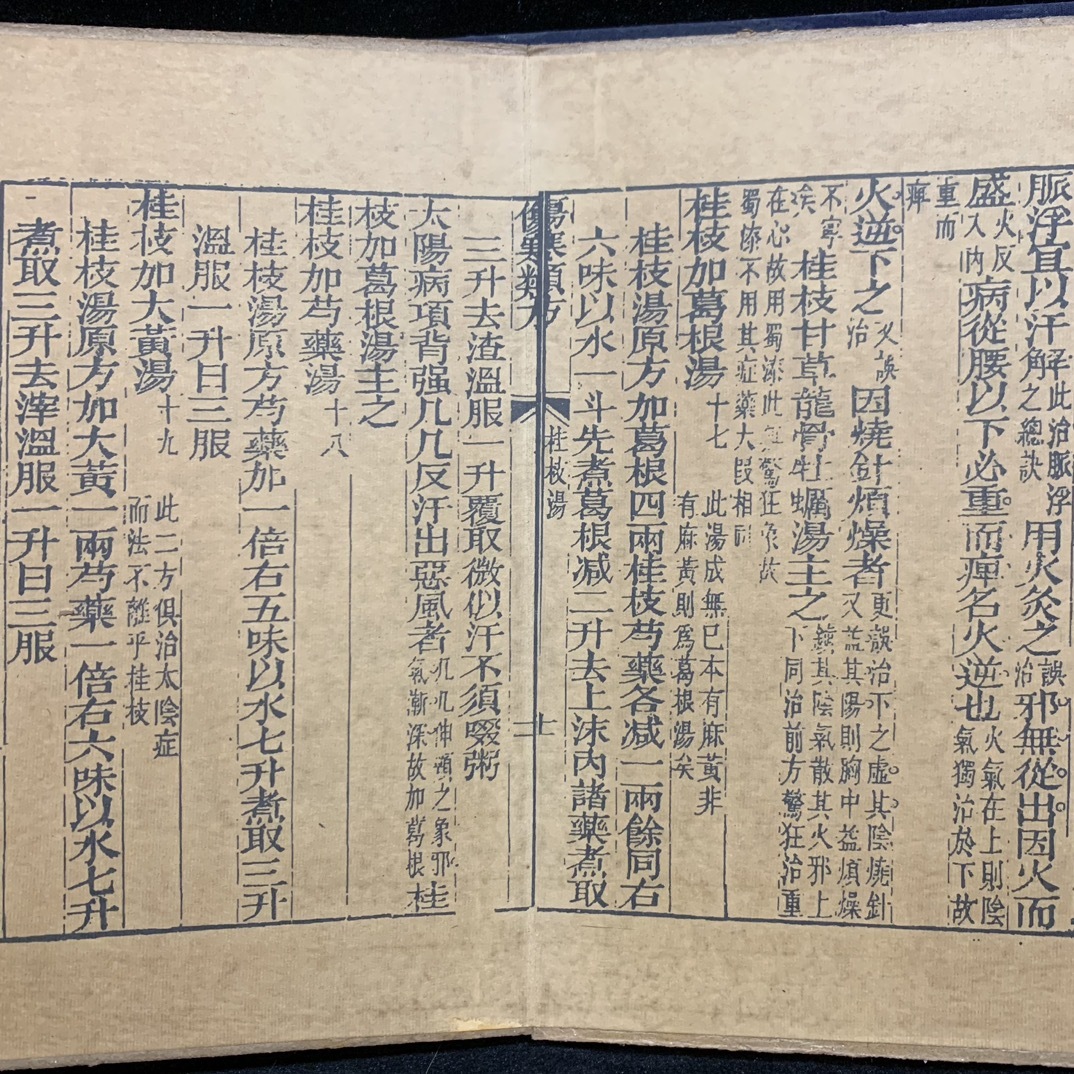 脈浮宜以汗解此治脈浮之總訣用火灸之誤治邪無從出因火而
盛火反入内病從腰以下必重而痺名火逆也火氣在上則陰氣獨治於下故
重而痺
火逆下之又誤治因燒針煩燥者更誤治下之虛其陰燒針又益其陽則胸中益煩燥
不寧矣桂枝甘草龍骨牡蠣湯主之鎮其陰氣散其火邪上下同治前方驚狂治重
在心故用蜀漆此無驚狂象故蜀漆不用其症藥大段相同
桂枝加葛根湯十七此湯成無已本有麻黃非有麻黃則爲葛根湯矣
桂枝湯原方加葛根四兩桂枝芍藥各減一兩餘同右
六味以水一斗先煮葛根減二升去上沫内諸藥煮取
傷寒類方 桂枝湯 十
三升去渣溫服一升覆取微似汗不須啜粥
太陽病項背强几几反汗出惡風者几几伸頸之象邪氣漸深故加葛根桂
枝加葛根湯主之
桂枝加芍藥湯十八
桂枝湯原方芍藥加一倍右五味以水七升煮取三升
溫服一升日三服
桂枝加大黃湯十九此二方俱治太陰症而法不離乎桂枝
桂枝湯原方加大黃一兩芍藥一倍右六味以水七升
煮取三升去滓溫服一升日三服